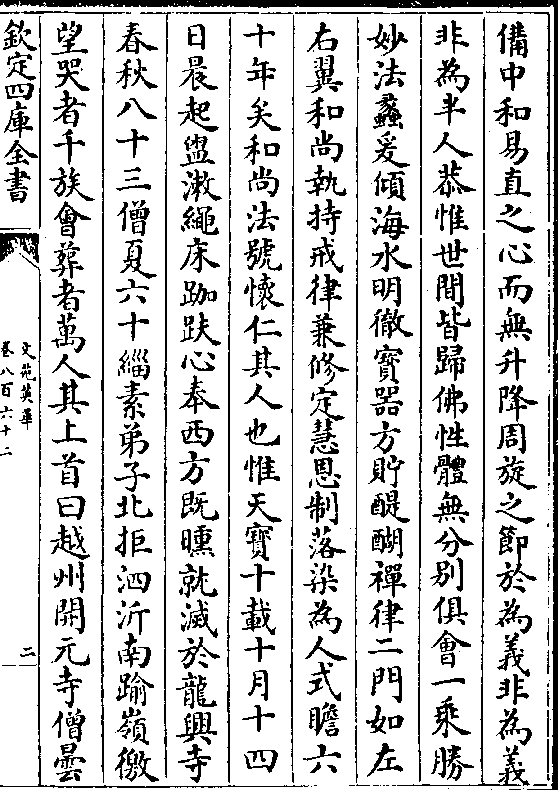 備中和易直之心而無升降周旋之節於為義非為義
非為半人恭惟世間皆歸佛性體無分別俱會一乘勝
妙法蠡爰傾海水明徹寶器方貯醍醐禪律二門如左
右翼和尚執持戒律兼修定慧恩制落染為人式瞻六
十年矣和尚法號懷仁其人也惟天寶十載十月十四
日晨起盥漱繩床跏趺心奉西方既曛就滅於龍興寺
春秋八十三僧夏六十緇素弟子北拒泗沂南踰嶺徼
望哭者千族會葬者萬人其上首曰越州開元寺僧曇
欽定四庫全書
文苑英華
卷八百六十二
二